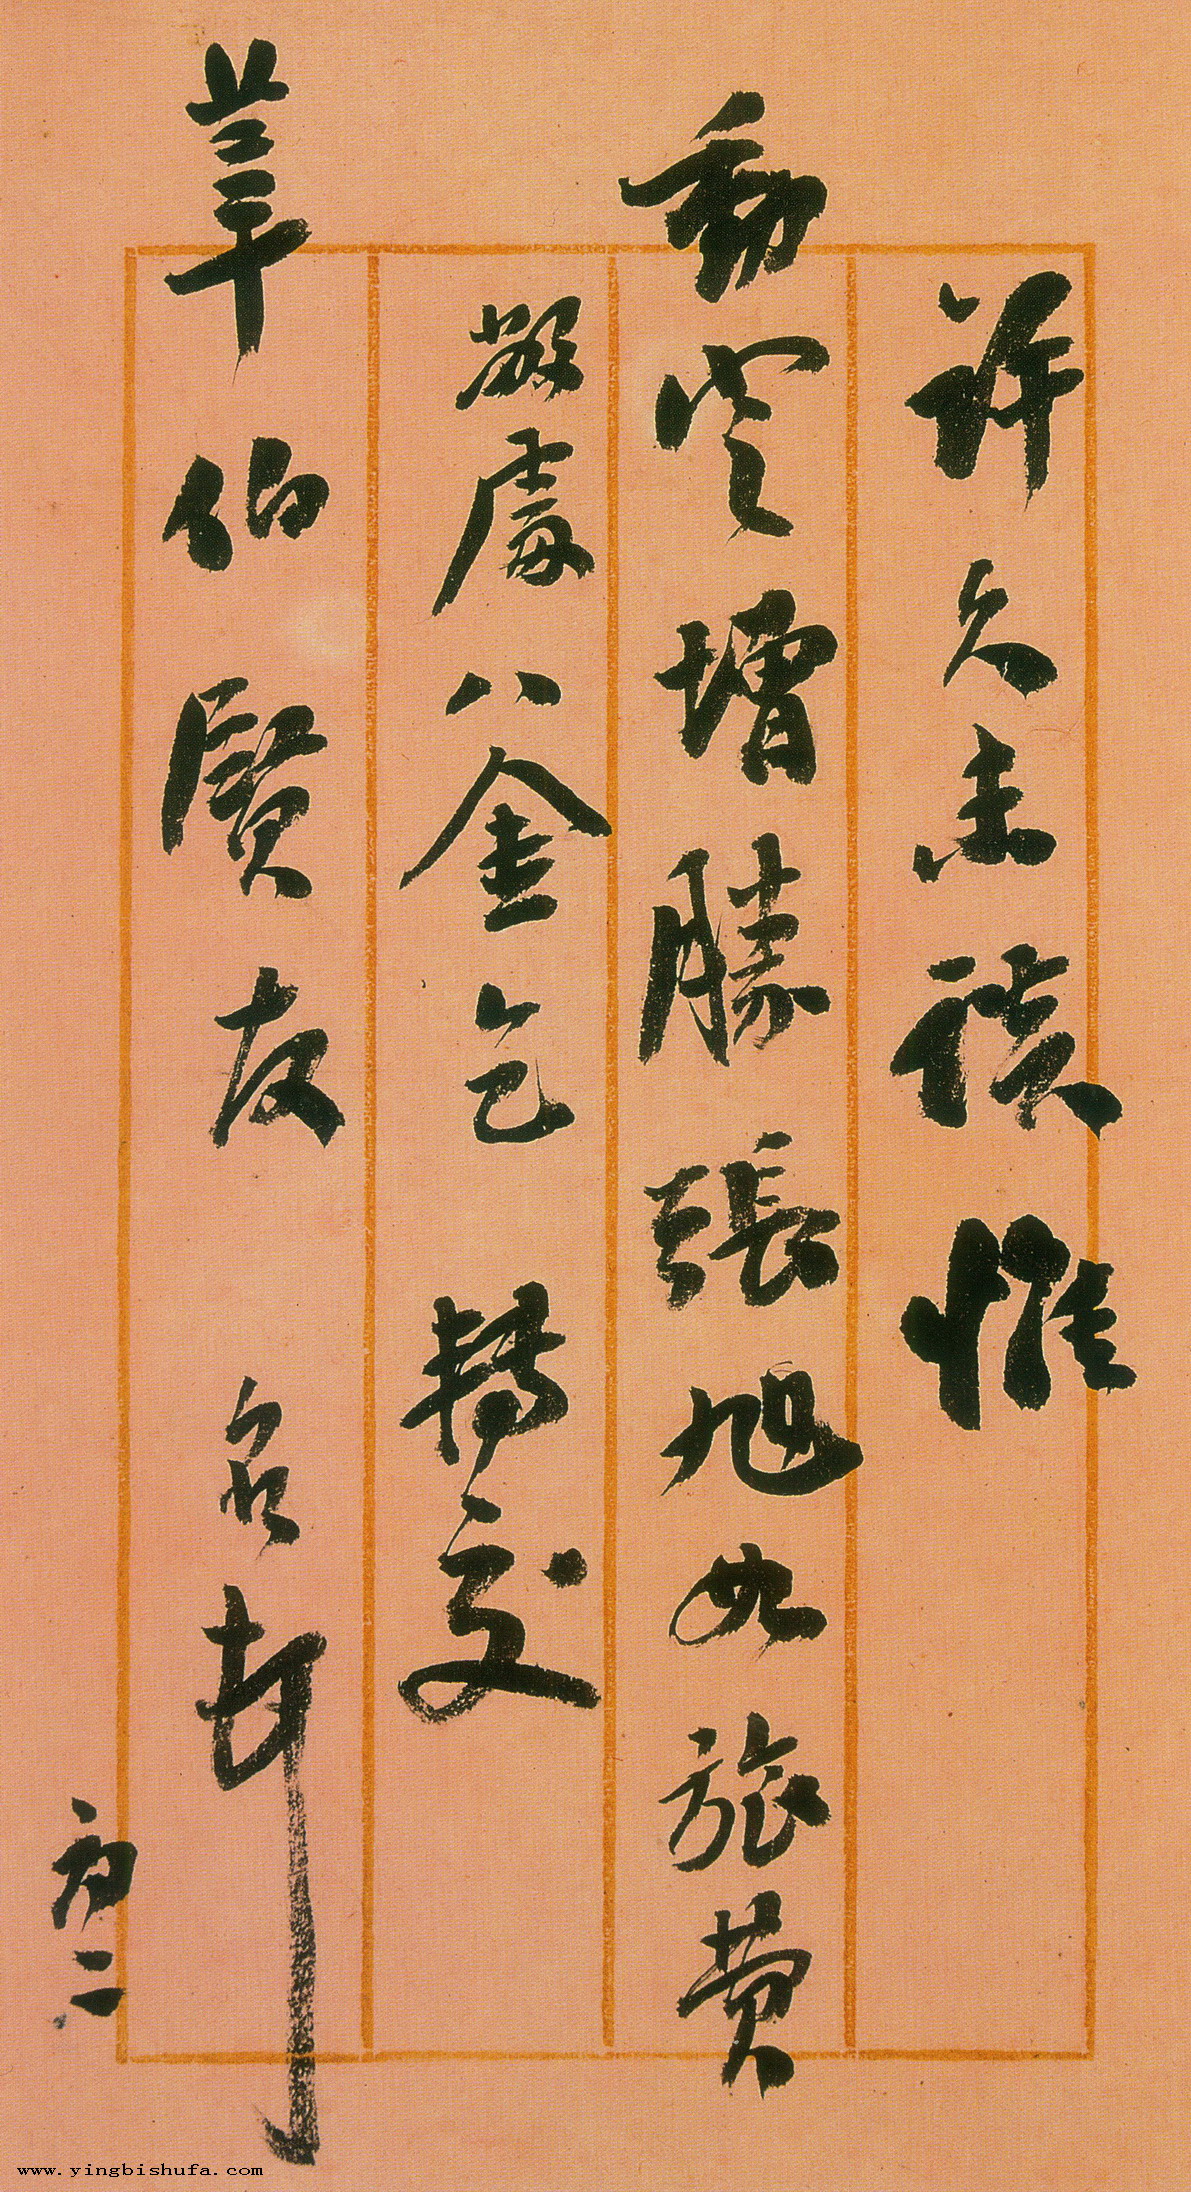 許久未談惟
動定增勝張旭如旅費
敝處八金乞 轉交
莘伯賢友 名頓
初二
www.yingbishufa.com